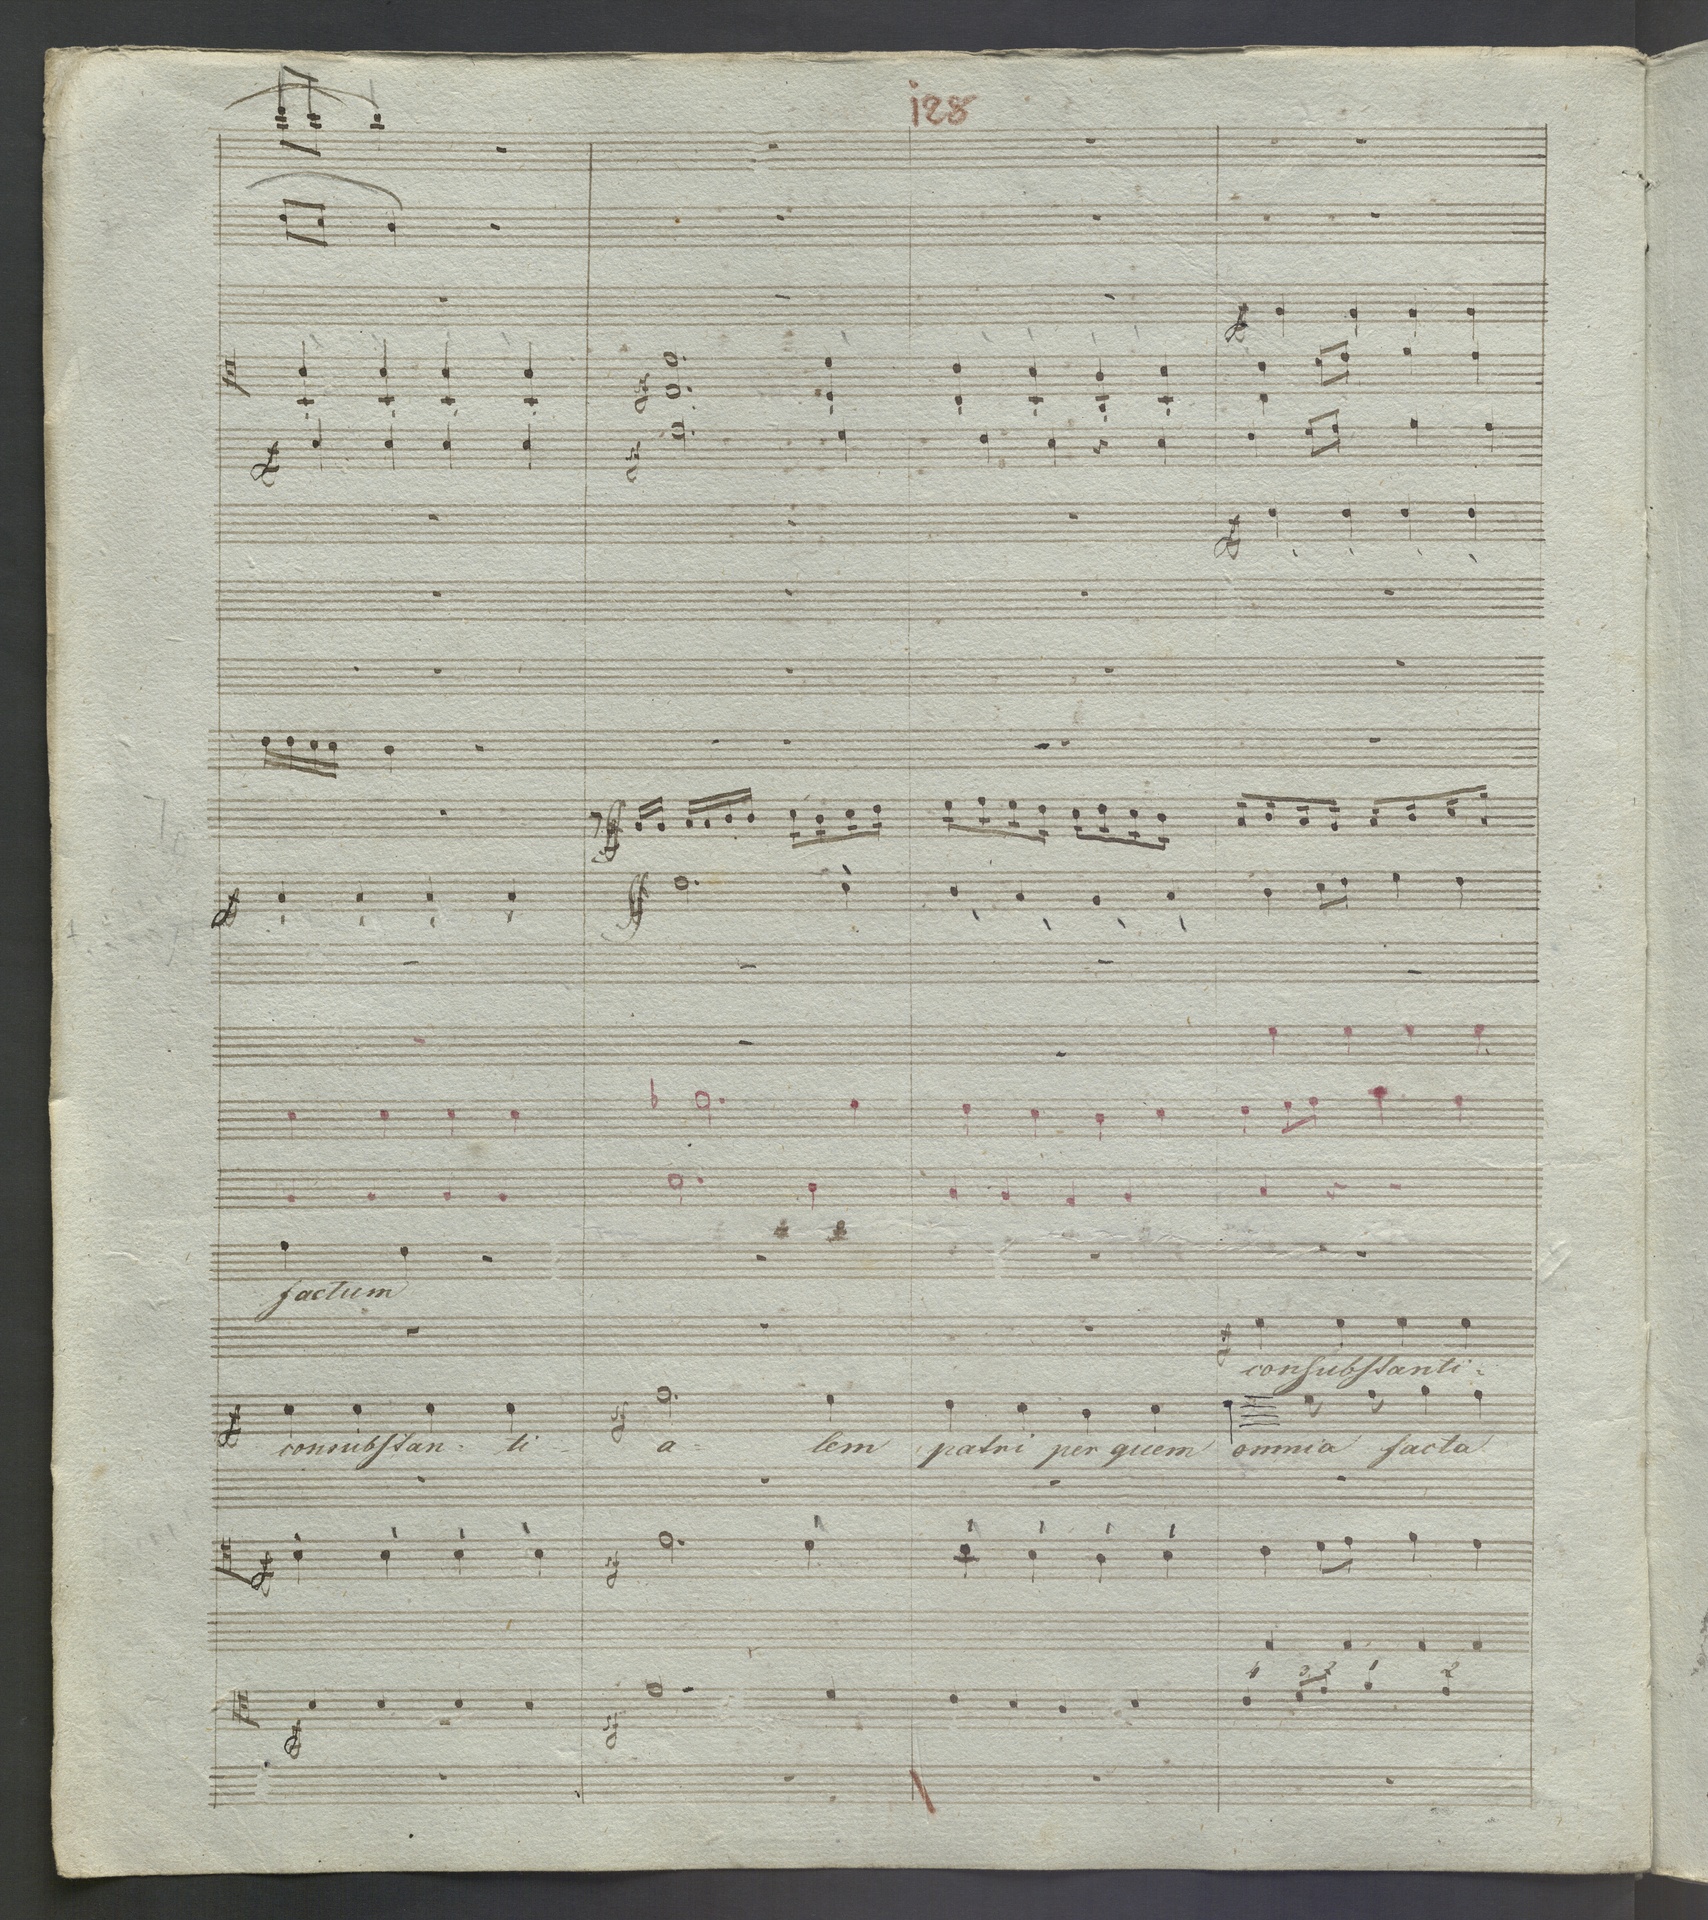 128
factum
consubstanti-
consubstan- ti- a- lem patri per quem omnia facta
4 3 2 1 2